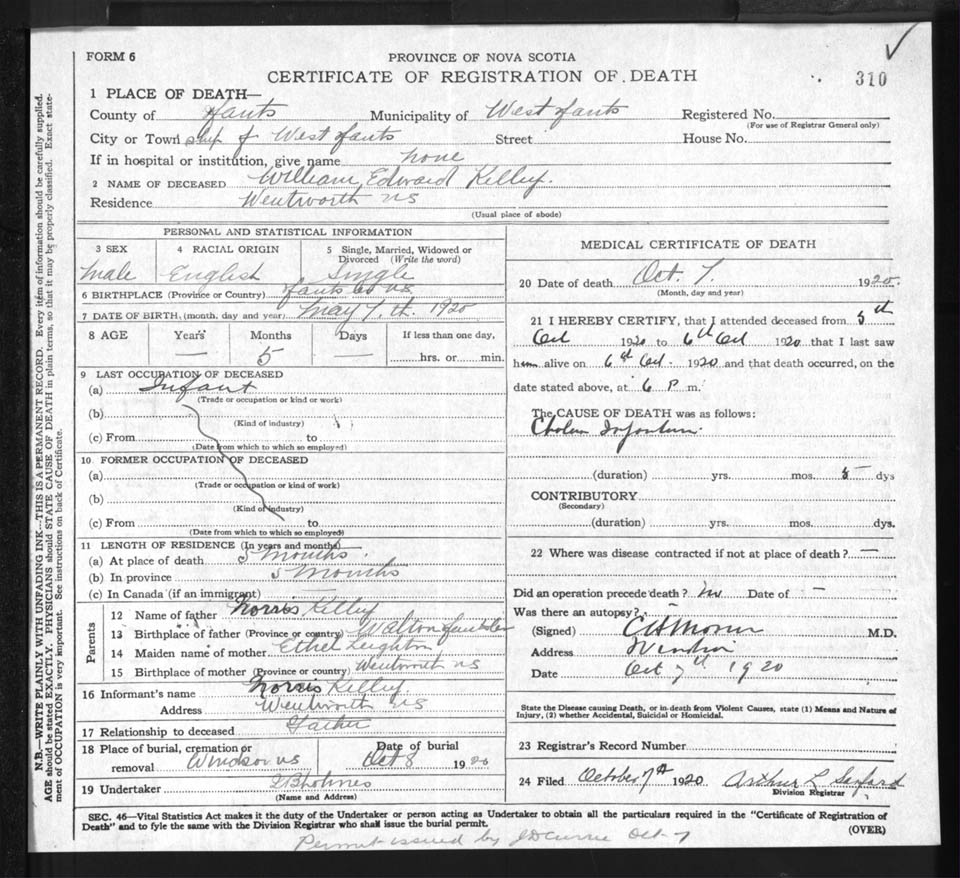 FORM 6
PROVINCE OF NOVA SCOTIA
CERTIFICATE OF REGISTRATION OF DEATH
310
1 PLACE OF DEATH—
County of Hants Municipality of West Hants Registered No.
(For use of Registrar General only)
City or Town ship of West Hants Street House No.
If in hospital or institution, give name none
2 NAME OF DECEASED William Edward Kelley.
Residence Wentworth NS
(Usual place of abode)
PERSONAL AND STATISTICAL INFORMATION
3 SEX 4 RACIAL ORIGIN 5 Single, Married, Widowed or
Divorced (Write the word)
Male English Single
6 BIRTHPLACE (Province or Country) Hants Co NS
7 DATE OF BIRTH, (month, day and year) May 7.th. 1920
8 AGE Years Months Days If less than one day,
— 5 — hrs. or min.
9 LAST OCCUPATION OF DECEASED
(a) Infant
(Trade or occupation or kind or work)
(b)
(Kind of industry)
(c) From to
(Date from which to which so employed)
10 FORMER OCCUPATION OF DECEASED
(a)
(Trade or occupation or kind of work)
(b)
(Kind of industry)
(c) From to
(Date from which to which so employed)
11 LENGTH OF RESIDENCE (In years and months)
(a) At place of death 5 months.
(b) In province 5 months
(c) In Canada (if an immigrant)
Parents
12 Name of father Norris Kelley
13 Birthplace of father (Province or country) Walton Hants Co
14 Maiden name of mother Ethel Leighton
15 Birthplace of mother (Province or country) Wentworth NS
16 Informant's name Norris Kelley.
Address Wentworth NS
17 Relationship to deceased Father
18 Place of burial, cremation or
removal Windsor NS
Date of burial
Oct 8 1920
19 Undertaker Holmes
(Name and Address)
MEDICAL CERTIFICATE OF DEATH
20 Date of death Oct 7. 1920.
(Month, day and year)
21 I HEREBY CERTIFY, that I attended deceased from 5th
Oct 1920 to 6th Oct 1920 that I last saw
him alive on 6th Oct. 1920 and that death occurred, on the
date stated above, at 6 P m.
The CAUSE OF DEATH was as follows:
Cholera Infantum.
(duration) yrs. mos. 5 dys
CONTRIBUTORY
(Secondary)
(duration) yrs. mos. dys.
22 Where was disease contracted if not at place of death? —
Did an operation precede death? no Date of —
Was there an autopsy? —
(Signed) M.D.
Address Windsor
Date Oct 7th 1920
State the Disease causing Death, or in death from Violent Causes, state (1) Means and Nature of
Injury, (2) whether Accidental, Suicidal or Homicidal.
23 Registrar's Record Number
24 Filed October 7th 1920 Arthur L Sanford
Division Registrar
SEC. 46—Vital Statistics Act makes it the duty of the Undertaker or person acting as Undertaker to obtain all the particulars required in the "Certificate of Registration of
Death" and to fyle the same with the Division Registrar who shall issue the burial permit.
(OVER)
Permit issued by J D Currie Oct 7
N.B.—WRITE PLAINLY WITH UNFADING INK—THIS IS A PERMANENT RECORD. Every item of information should be carefully supplied.
AGE should be stated EXACTLY. PHYSICIANS should STATE CAUSE OF DEATH in plain terms, so that it may be properly classified. Exact state-
ment of OCCUPATION is very important. See instructions on back of Certificate.